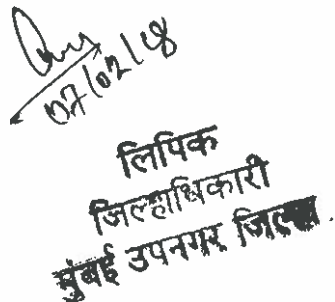 07/02/18
लिपिक
जिल्हाधिकारी
मुंबई उपनगर जिल्हा.